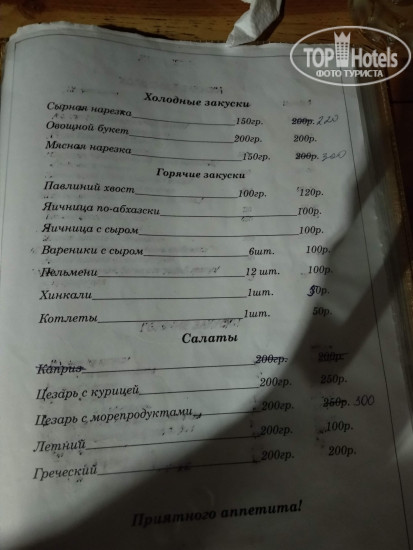 TOP Hotels
ФОТО ТУРИСТА
Холодные закуски
Сырная нарезка 150гр. 200р. 220
Овощной букет 200гр. 200р.
Мясная нарезка 150гр. 200р. 300
Горячие закуски
Павлиний хвост 100гр. 120р.
Яичница по-абхазски 100р.
Яичница с сыром 100р.
Вареники с сыром 6шт. 100р.
Пельмени 12 шт. 100р.
Хинкали 1шт. 50р.
Котлеты 1шт. 50р.
Салаты
Каприз 200гр. 200р.
Цезарь с курицей 200гр. 250р.
Цезарь с морепродуктами 200гр. 250р. 300
Летний 200гр. 100р.
Греческий 200гр. 200р.
Приятного аппетита!